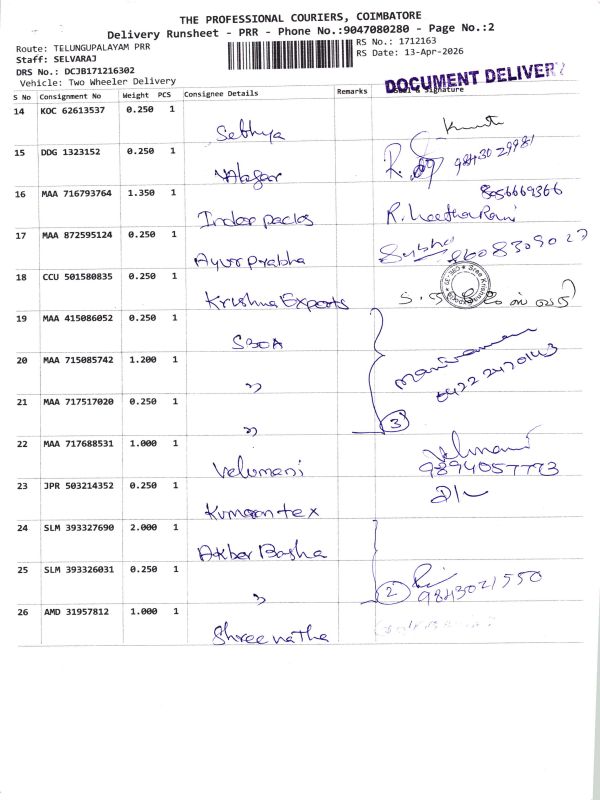 THE PROFESSIONAL COURIERS, COIMBATORE
Delivery Runsheet - PRR - Phone No.:9047080280 - Page No.:2
Route: TELUNGUPALAYAM PRR
RS No.: 1712163
Staff: SELVARAJ
RS Date: 13-Apr-2026
DRS No.: DCJB171216302
Vehicle: Two Wheeler Delivery
DOCUMENT DELIVERY
S No Consignment No Weight PCS Consignee Details Remarks Signature
14 KOC 62613537 0.250 1
Sathya
15 DDG 1323152 0.250 1
98430 29981
16 MAA 716793764 1.350 1
8056669366
Indor packs
17 MAA 872595124 0.250 1
Ayur prabha Subha 8608309027
18 CCU 501580835 0.250 1
Krishna Exports
19 MAA 415086052 0.250 1
SBOA
20 MAA 715085742 1.200 1
"
0422 2470143
21 MAA 717517020 0.250 1
" 3
22 MAA 717688531 1.000 1
Velumani Velmani
9894057773
23 JPR 503214352 0.250 1
Kumaran tex
24 SLM 393327690 2.000 1
Akber Basha
25 SLM 393326031 0.250 1
" 2 9843021550
26 AMD 31957812 1.000 1
Shree natha